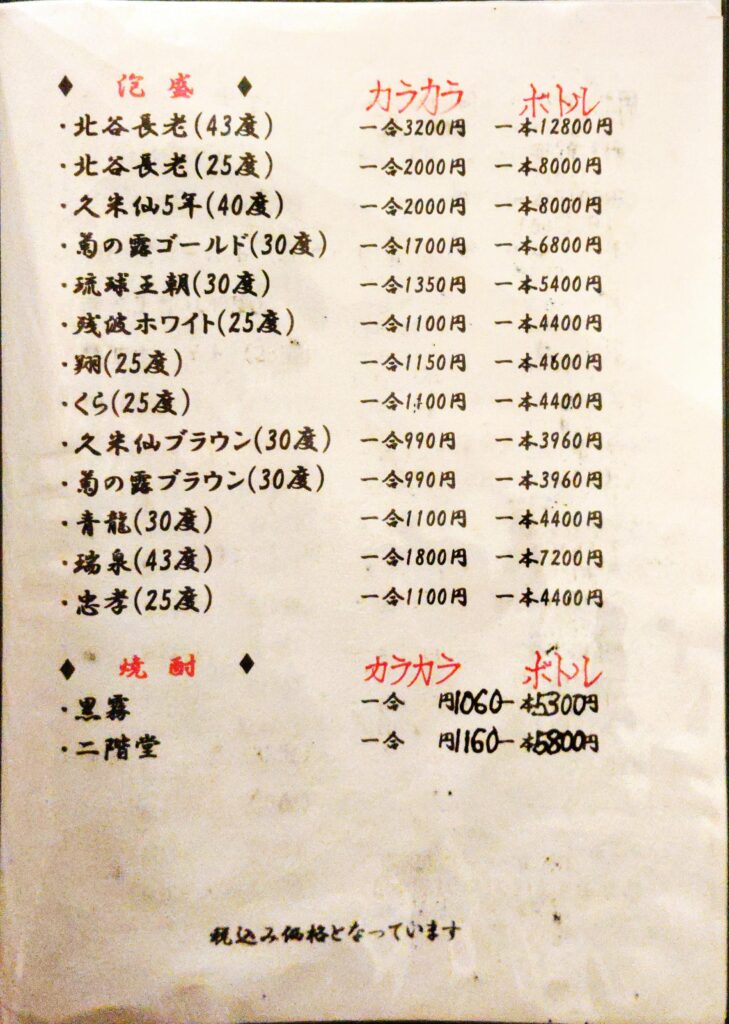 ♦ 泡盛 ♦ カラカラ ボトル
・北谷長老(43度) 一合3200円 一本12800円
・北谷長老(25度) 一合2000円 一本8000円
・久米仙5年(40度) 一合2000円 一本8000円
・菊の露ゴールド(30度) 一合1700円 一本6800円
・琉球王朝(30度) 一合1350円 一本5400円
・残波ホワイト(25度) 一合1100円 一本4400円
・翔(25度) 一合1150円 一本4600円
・くら(25度) 一合1100円 一本4400円
・久米仙ブラウン(30度) 一合990円 一本3960円
・菊の露ブラウン(30度) 一合990円 一本3960円
・青龍(30度) 一合1100円 一本4400円
・瑞泉(43度) 一合1800円 一本7200円
・忠孝(25度) 一合1100円 一本4400円
♦ 焼酎 ♦ カラカラ ボトル
・黒霧 一合 円1060 一本5300円
・二階堂 一合 円1160 一本5800円
税込み価格となっています